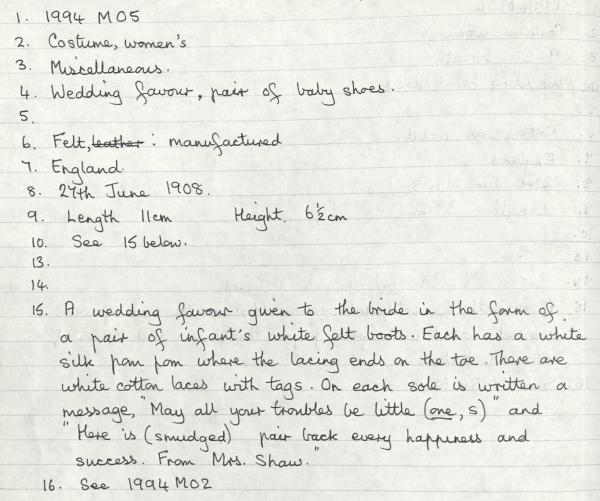 1. 1994 M05
2. Costume, women's
3. Miscellaneous.
4. Wedding favour, pair of baby shoes.
5.
6. Felt, leather : manufactured
7. England.
8. 27th June 1908.
9. Length 11cm Height. 6½cm
10. See 15 below.
13.
14.
15. A wedding favour given to the bride in the form of
a pair of infant's white felt boots. Each has a white
silk pom pom where the lacing ends on the toe. There are
white cotton laces with tags. On each sole is written a
message, "May all your troubles be little (one, s)" and
"Here is (smudged) pair back every happiness and
success. From Mrs. Shaw."
16. See 1994 M02